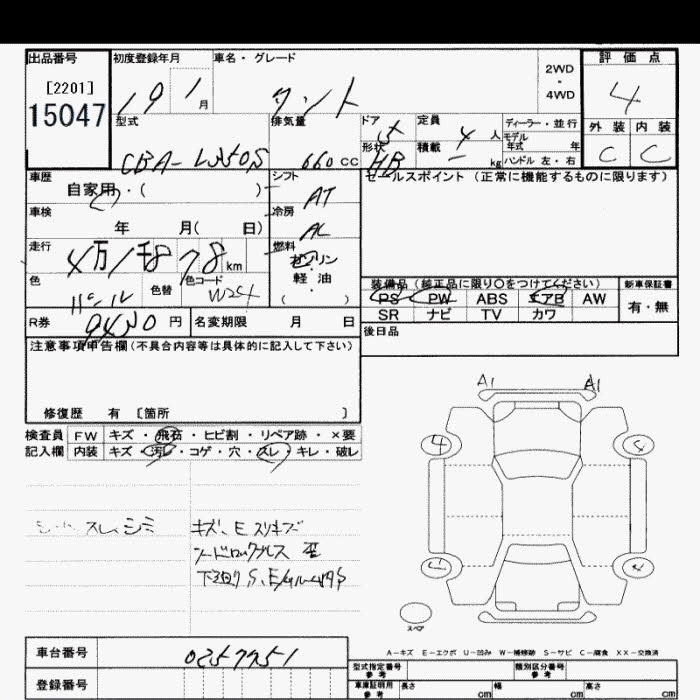 出品番号 初度登録年月 車名・グレード 2WD・4WD 評価点
[2201]
15047
19 1 月 タント 4
型式 排気量 ドア 5 定員 4 人 ディーラー・並行 外装 内装
モデル年式 年
CBA- 660 CC 形状 HB 積載 - kg ハンドル 左・右 C C
車歴 シフト セールスポイント (正常に機能するものに限ります)
自家用・( ) AT
車検 冷房
年 月( 日) AC
走行 燃料
4万1千878 km ガソリン
色 色替 色コード 軽油
パール W24 ( )
装備品 (純正品に限り○をつけてください) 新車保証書
PS PW ABS エアB AW 有・無
R券 円 名変期限 月 日 SR ナビ TV カワ
後日品
注意事項申告欄(不具合内容等は具体的に記入して下さい)
修復歴 有 〔箇所 〕
A1 A1
検査員 FW キズ・飛石・ヒビ割・リペア跡・×要
記入欄 内装 キズ・汚レ・コゲ・穴・スレ・キレ・破レ
4 4
スレ、シミ キズ、E スリキズ
歪
下廻り S、
4 4
スペア
A-キズ E-エクボ U-凹み W-補修跡 S-サビ C-腐食 XX-交換済
車台番号 0257751
型式指定番号 参考 類別区分番号 参考
登録番号 車庫証明用 参考 長さ cm 幅 cm 高さ cm